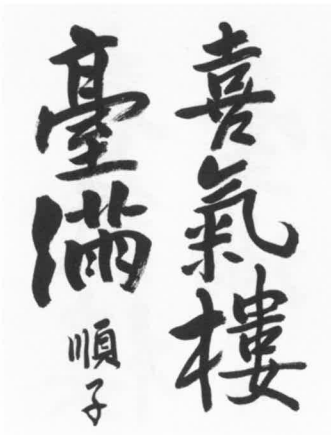 喜氣樓
臺滿
順子